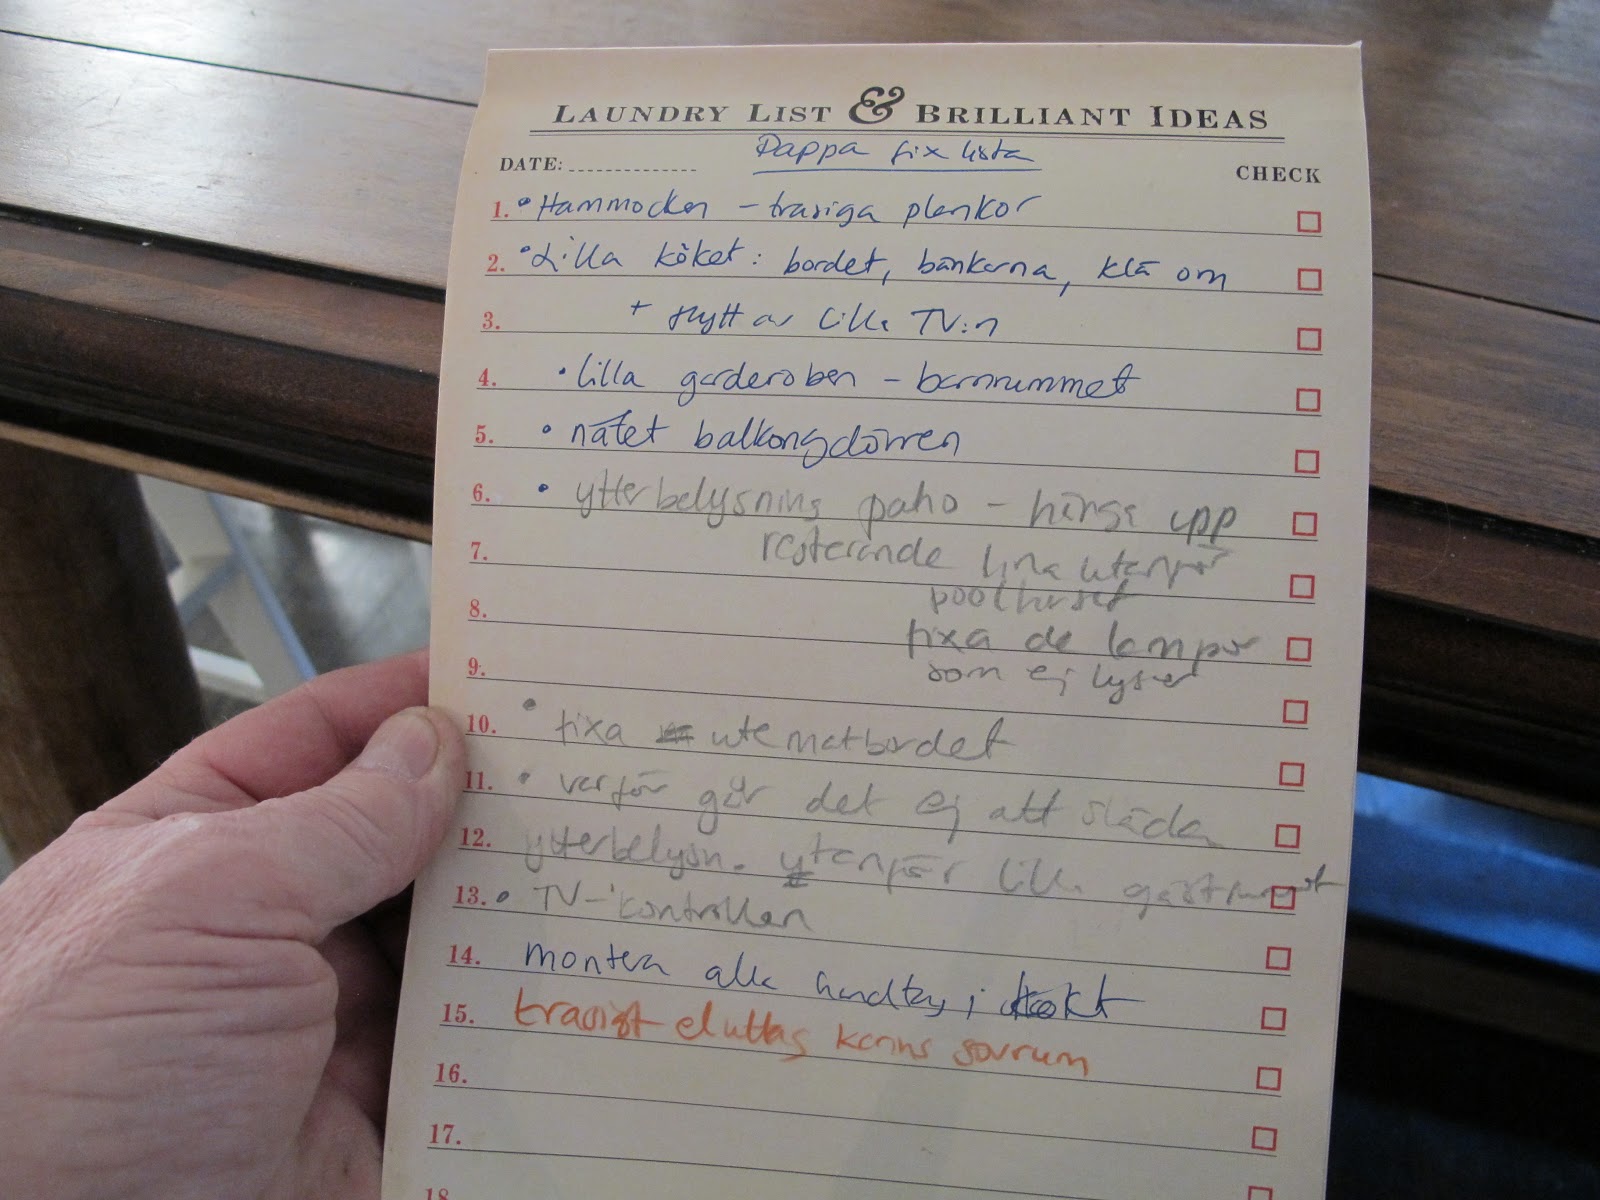 LAUNDRY LIST & BRILLIANT IDEAS
Pappa fix lista
DATE: CHECK
1. • Hammocken - trasiga plankor
2. • Lilla köket: bordet, bänkarna, klä om
3. + flytt av lilla TV:n
4. • lilla garderoben - barnrummet
5. • nätet balkongdörren
6. • ytterbelysning patio - hänga upp
7. resterande lina utanför
poolhuset
8. fixa de lampor
9. som ej lyser
10. • fixa utematbordet
11. • varför går det ej att släcka
12. ytterbelysn. utanför lilla gästrummet
13. • TV-kontrollen
14. montera alla i
15. trasigt eluttag Karins sovrum
16.
17.
18.